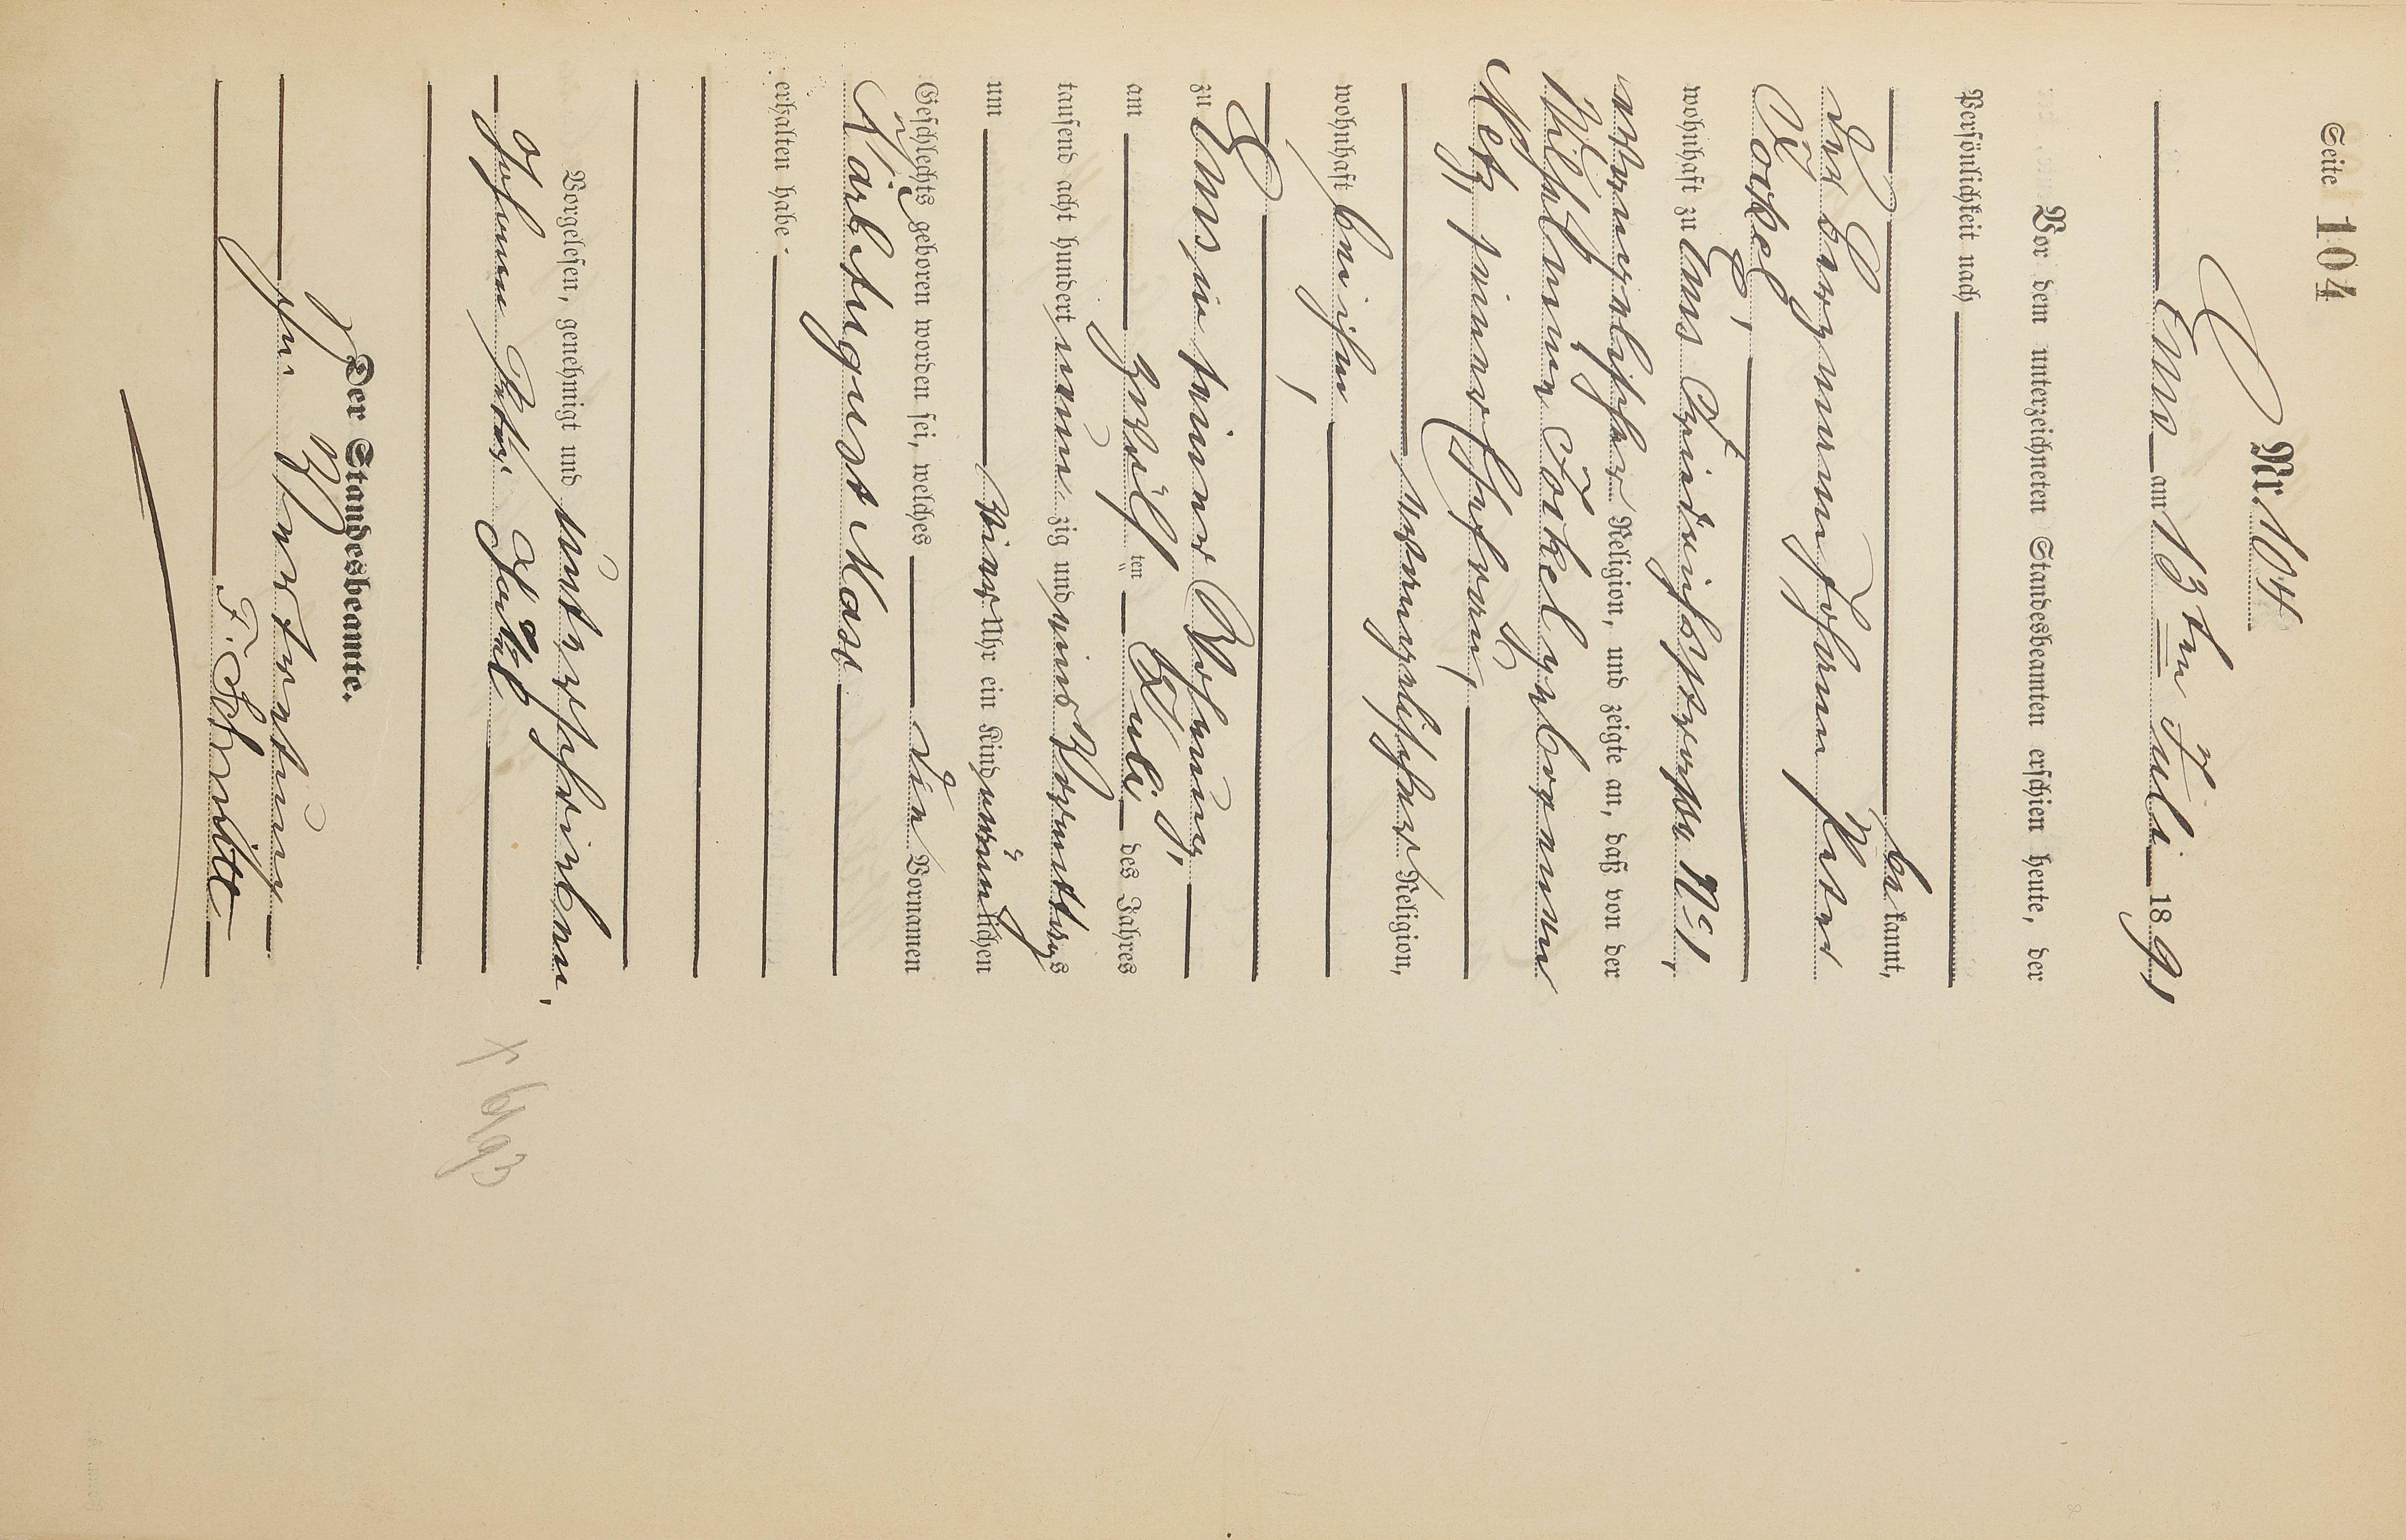 Seite 104
Nr. 104
Ems am 13ten Juli 1891
Vor dem unterzeichneten Standesbeamten erschien heute, der
Persönlichkeit nach
be kannt,
der Bergmann Johann Peter
Jöckel,
wohnhaft zu Ems Friedrichsstrasse No 1,
evangelischer Religion, und zeigte an, daß von der
Wilhelmine Jöckel geborenen
Metz, seiner Ehefrau,
evangelischer Religion,
wohnhaft bei ihm,
zu Ems in seiner Wohnung,
am zwölf ten Juli des Jahres
tausend acht hundert neun zig und eins Vormittags
um vier Uhr ein Kind männlichen
Geschlechts geboren worden sei, welches die Vornamen
Karl August Max
erhalten habe.
Vorgelesen, genehmigt und unterschrieben,
Johann Peter Jöckel
Der Standesbeamte.
In Vertretung
F. Schmitt